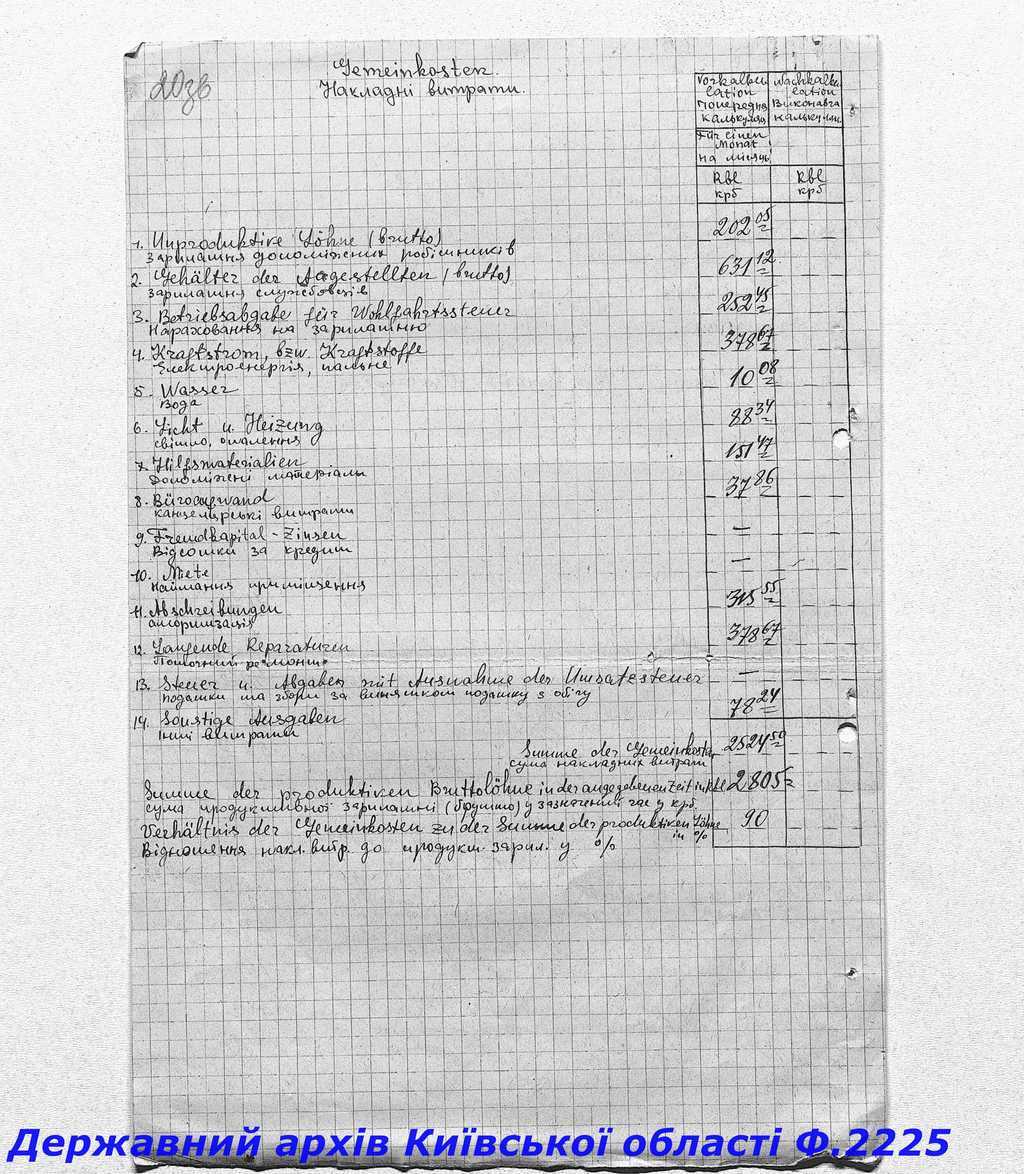 203в
Gemeinkosten.
Накладні витрати.
Vorkalku
lation
попередня
калькуляц
Nachkalku
lation
Виконавча
калькуляц.
Für einen
Monat
на місяць
Rbl
крб
Rbl
крб
1. Unproduktive Löhne (brutto) 202 05
Зарплатня допоміжних робітників
2. Gehälter der Angestellten (brutto) 631 12
Зарплатня службовців
3. Betriebsabgabe für Wohlfahrtssteuer 252 45
Нараховання на зарплатню
4. Kraftstrom, bzw. Kraftstoffe 378 67
Електроенергія, пальне
5. Wasser 10 08
Вода
6. Licht u. Heizung 88 34
світло, опалення
7. Hilfsmaterialien 151 47
Допоміжні матеріали
8. Büroaufwand 37 86
канцелярські витрати
9. Fremdkapital-Zinsen —
Відсотки за кредит
10. Miete —
наймання приміщення
11. Abschreibungen 315 55
амортизація
12. Laufende Reparaturen 378 67
Поточний ремонт
13. Steuer u. Abgaben mit Ausnahme der Umsatzsteuer —
податки та збори за винятком податку з обігу
14. Sonstige Ausgaben 78 24
Інші витрати
Summe der Gemeinkosten 2524 50
сума накладних витрат
Summe der produktiven Bruttolöhne in der angegebenen Zeit in Rbl 2805
сума продуктивної зарплатні (брутто) у зазначений час у крб.
Verhältnis der Gemeinkosten zu der Summe der produktiven Löhne 90
in %
Відношення накл. витр. до продукт. зарпл. у %
Державний архів Київської області Ф.2225